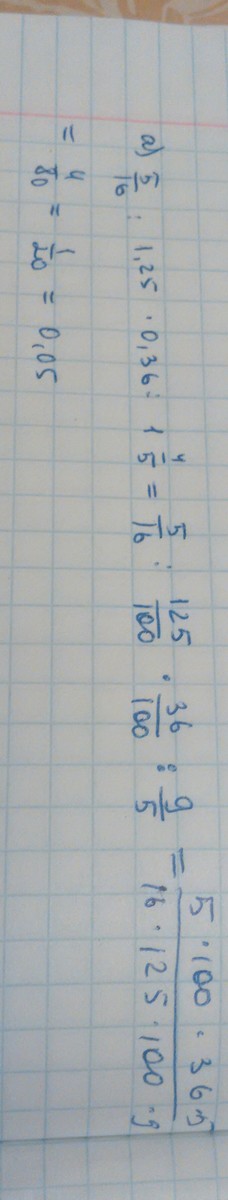 а) 5/16 : 1,25 · 0,36 : 1 4/5 = 5/16 : 125/100 · 36/100 : 9/5 = 5 · 100 · 36 · 5/16 · 125 · 100 · 9
= 4/80 = 1/20 = 0,05